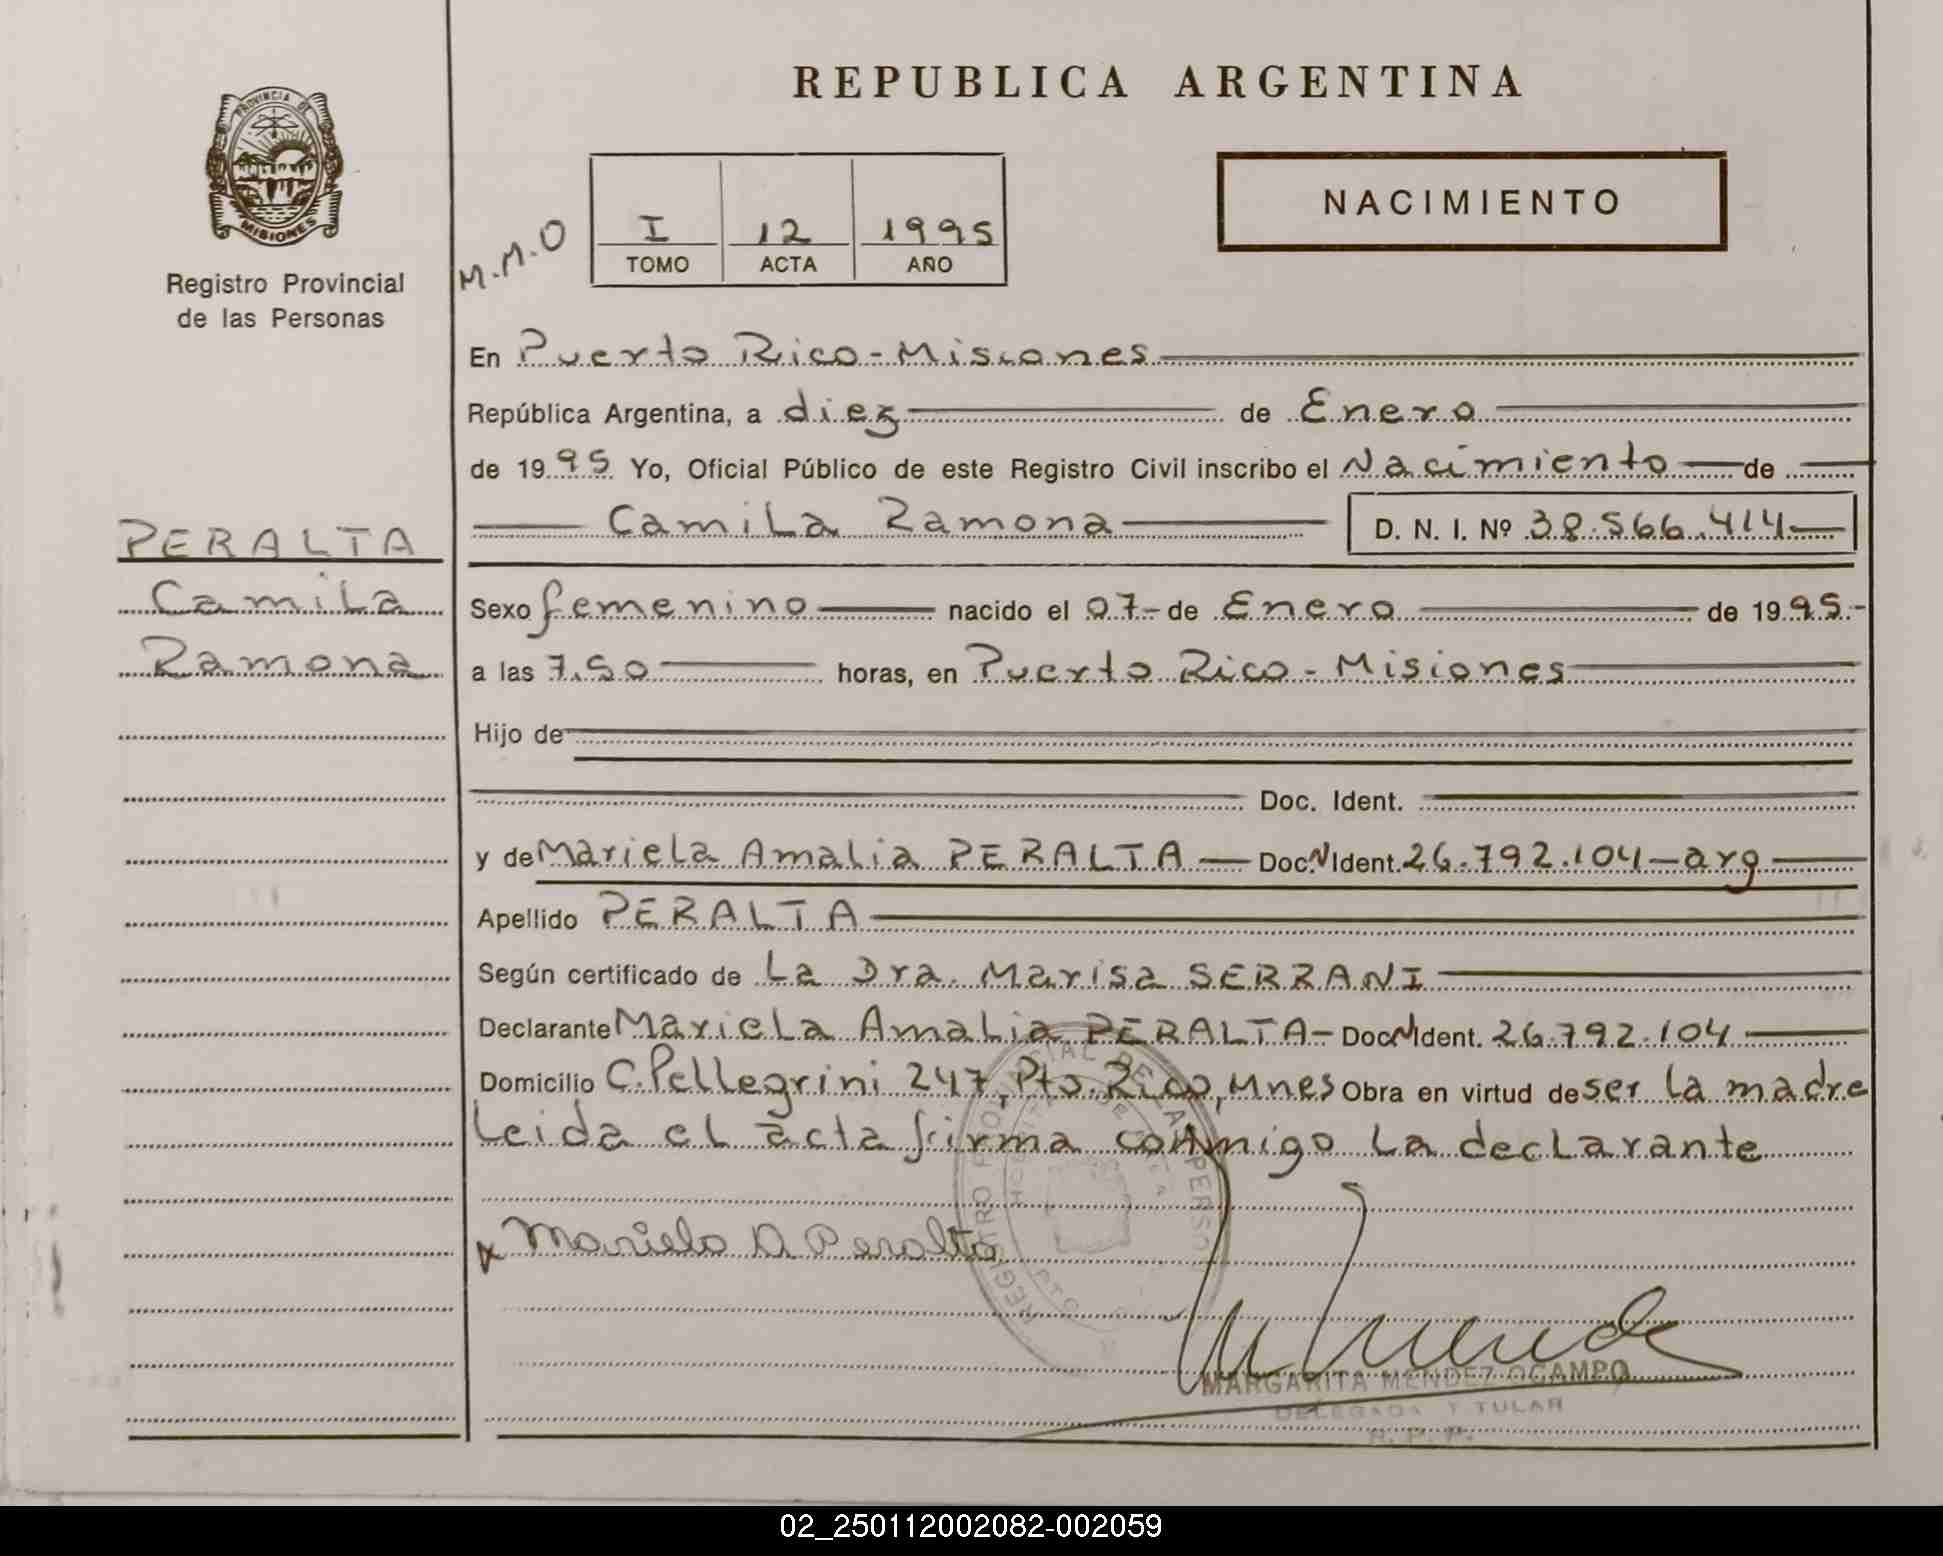 REPUBLICA ARGENTINA
PROVINCIA DE
MISIONES
Registro Provincial
de las Personas
M.M.O
I 12 1995
TOMO ACTA AÑO
NACIMIENTO
En Puerto Rico - Misiones
República Argentina, a diez de Enero
de 1995 Yo, Oficial Público de este Registro Civil inscribo el Nacimiento de
Camila Ramona D. N. I. Nº 38.566.414
PERALTA
Camila
Ramona
Sexo femenino nacido el 07 - de Enero de 1995.-
a las 7.50 horas, en Puerto Rico - Misiones
Hijo de
Doc. Ident.
y de Mariela Amalia PERALTA Doc. N Ident. 26.792.104 - arg
Apellido PERALTA
Según certificado de La Dra. Marisa SERRANI
Declarante Mariela Amalia PERALTA - Doc N Ident. 26.792.104
Domicilio C. Pellegrini 247, Pto. Rico, Mnes Obra en virtud de ser la madre
Leida el acta firma conmigo la declarante
x Mariela A Peralta
MARGARITA MENDEZ OCAMPO
DELEGADA TITULAR
R. P. P.
02_250112002082-002059